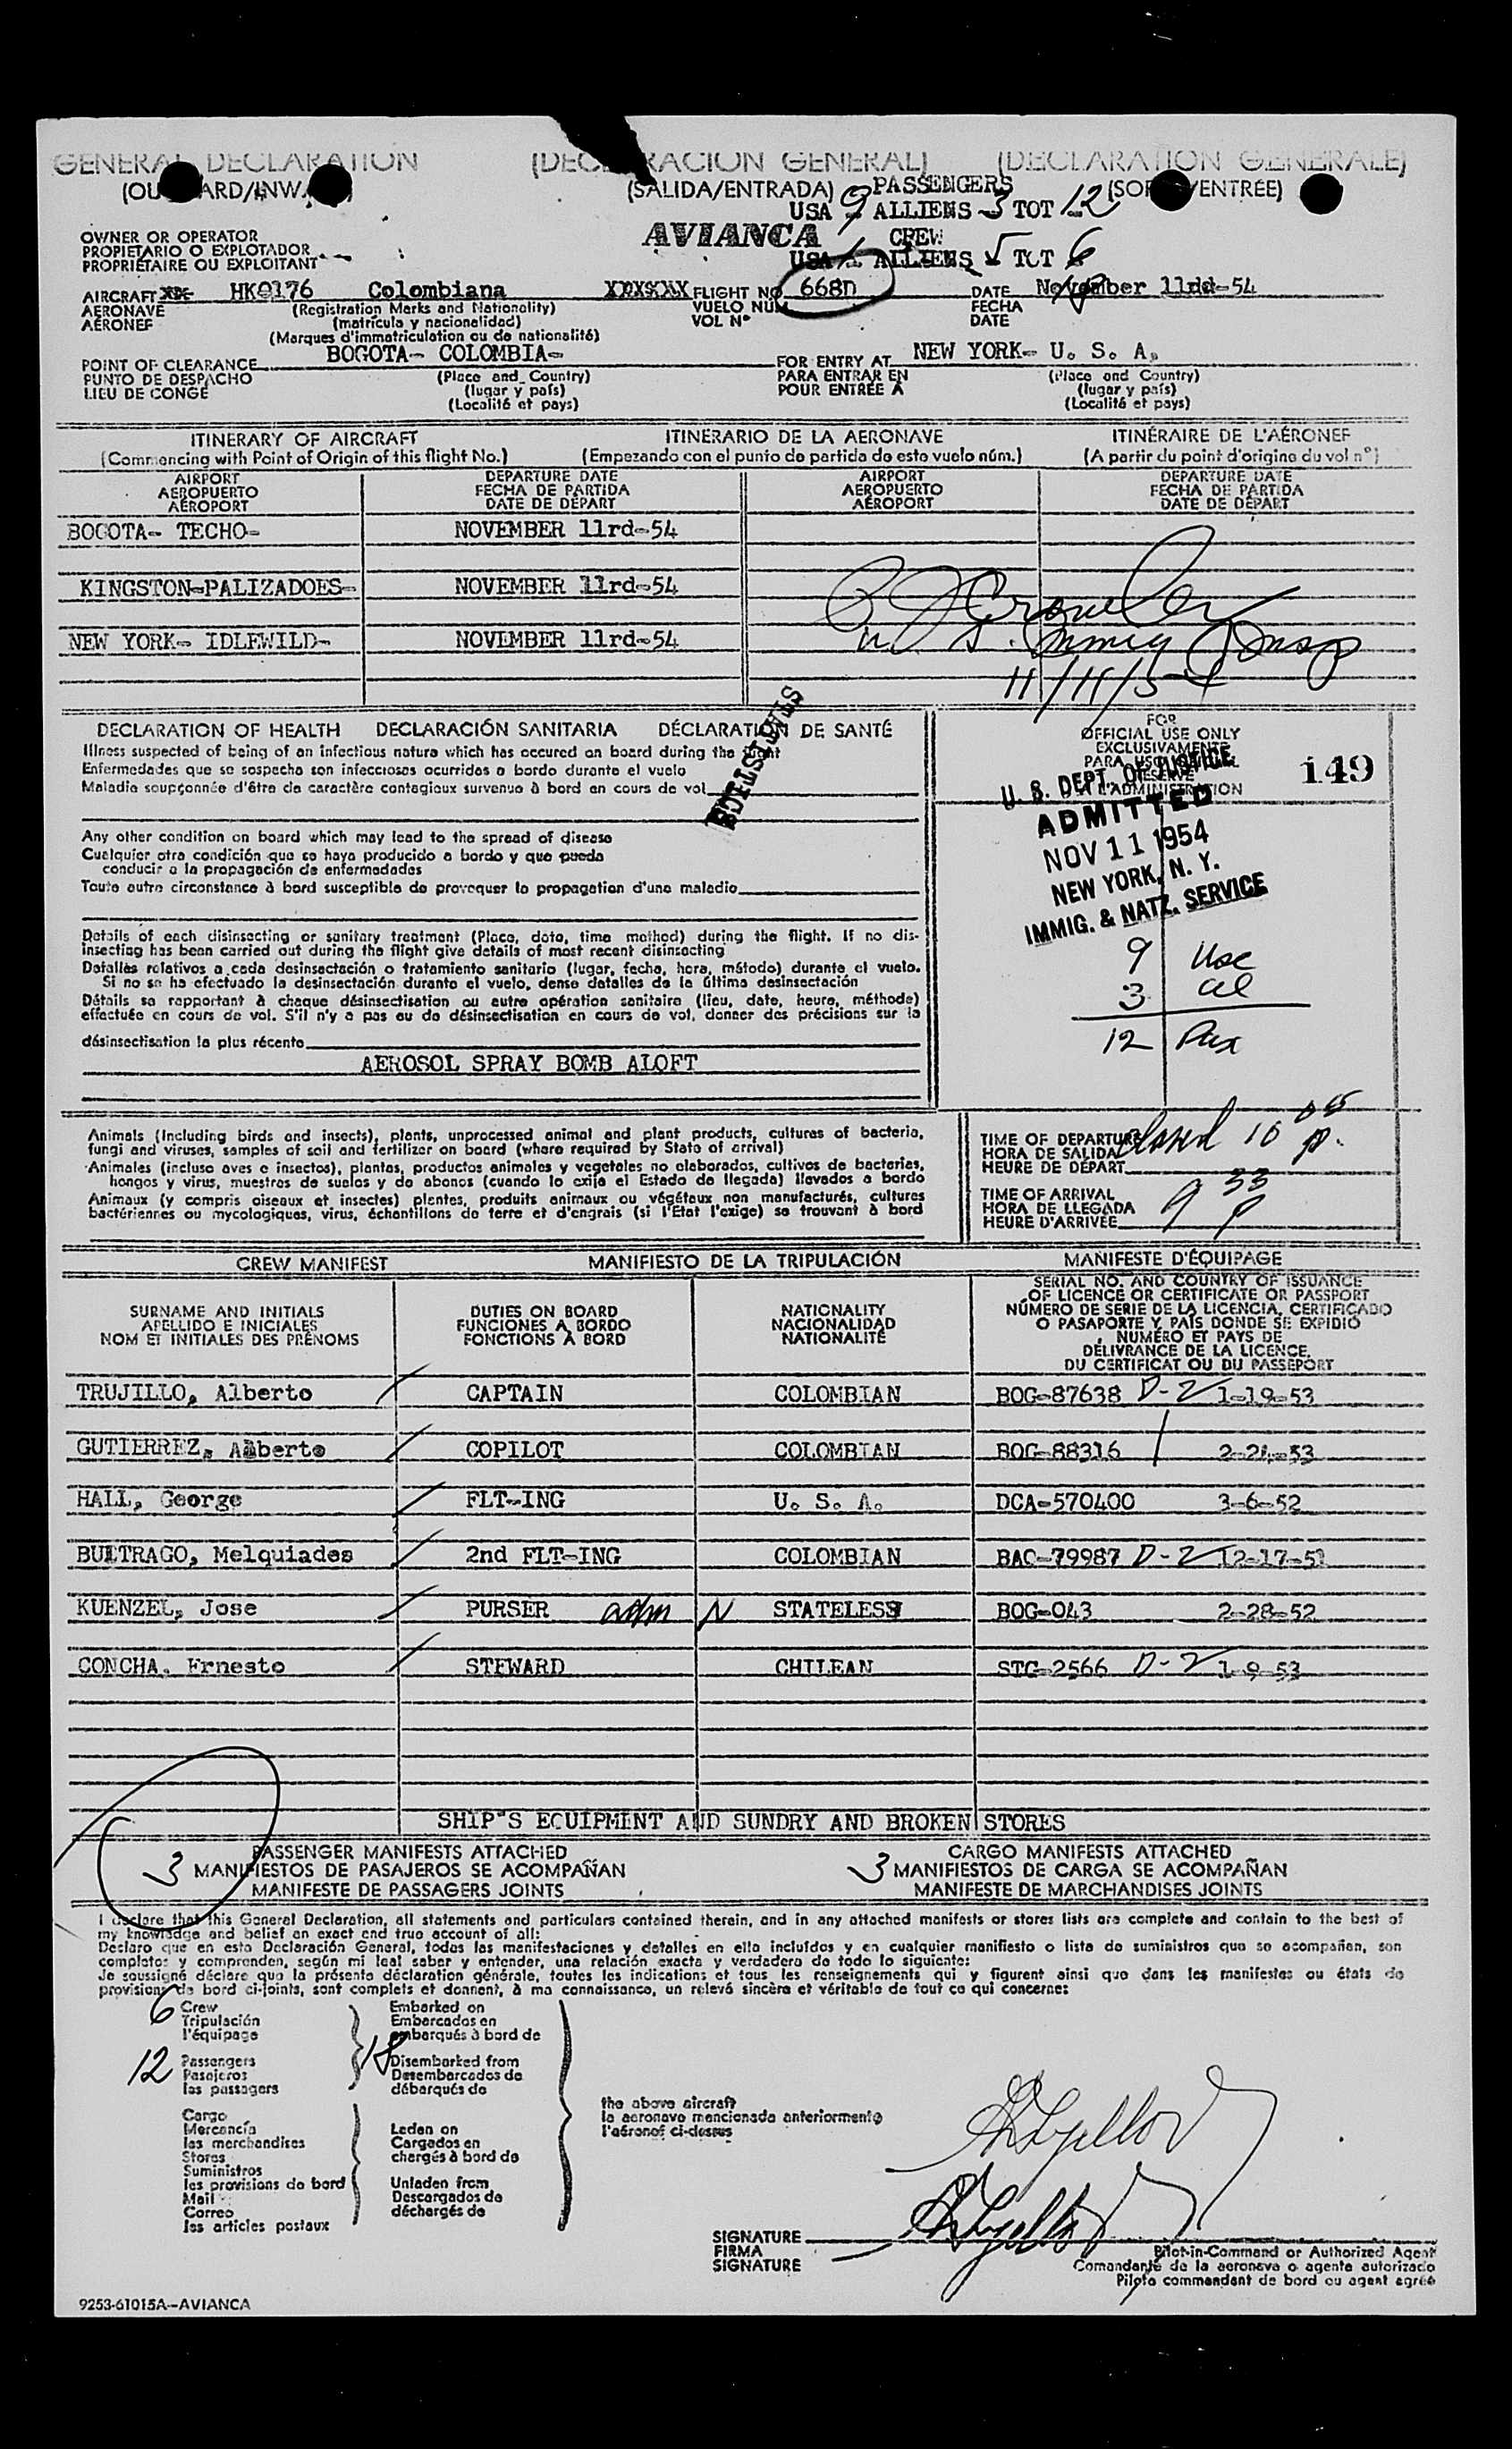 GENERAL DECLARATION (DECLARACIÓN GENERAL) (DÉCLARATION GÉNÉRALE)
(OUTWARD/INWARD) (SALIDA/ENTRADA) (SORTIE/ENTRÉE)
PASSENGERS
USA 9 ALLIENS 3 TOT 12
AVIANCA CREW
USA 1 ALLIENS 5 TOT 6
OWNER OR OPERATOR
PROPIETARIO O EXPLOTADOR
PROPRIÉTAIRE OU EXPLOITANT
AIRCRAFT HK0176 Colombiana FLIGHT NO 668D DATE November 11dd-54
AERONAVE (Registration Marks and Nationality) VUELO NUM. FECHA
AÉRONEF (matrícula y nacionalidad) VOL N° DATE
(Marques d'immatriculation ou de nationalité)
POINT OF CLEARANCE BOGOTA- COLOMBIA- FOR ENTRY AT NEW YORK- U. S. A.
PUNTO DE DESPACHO (Place and Country) PARA ENTRAR EN (Place and Country)
LIEU DE CONGÉ (lugar y país) POUR ENTRÉE À (lugar y país)
(Localité et pays) (Localité et pays)
ITINERARY OF AIRCRAFT ITINERARIO DE LA AERONAVE ITINÉRAIRE DE L'AÉRONEF
(Commencing with Point of Origin of this flight No.) (Empezando con el punto de partida de este vuelo núm.) (A partir du point d'origine du vol n°)
AIRPORT DEPARTURE DATE AIRPORT DEPARTURE DATE
AEROPUERTO FECHA DE PARTIDA AEROPUERTO FECHA DE PARTIDA
AÉROPORT DATE DE DÉPART AÉROPORT DATE DE DÉPART
BOGOTA- TECHO- NOVEMBER 11rd-54
KINGSTON-PALIZADOES- NOVEMBER 11rd-54
NEW YORK- IDLEWILD- NOVEMBER 11rd-54
U. S. Immig Insp
11/11/54
DECLARATION OF HEALTH DECLARACIÓN SANITARIA DÉCLARATION DE SANTÉ
Illness suspected of being of an infectious nature which has occured on board during the flight
Enfermedades que se sospecha son infecciosas ocurridas a bordo durante el vuelo
Maladie soupçonnée d'être de caractère contagieux survenue à bord en cours de vol
STATISTICS
Any other condition on board which may lead to the spread of disease
Cualquier otra condición que se haya producido a bordo y que pueda
conducir a la propagación de enfermedades
Toute autre circonstance à bord susceptible de provoquer la propagation d'une maladie
Details of each disinsecting or sanitary treatment (Place, date, time method) during the flight. If no dis-
insecting has been carried out during the flight give details of most recent disinsecting
Detalles relativos a cada desinsectación o tratamiento sanitario (lugar, fecha, hora, método) durante el vuelo.
Si no se ha efectuado la desinsectación durante el vuelo, dense detalles de la última desinsectación
Détails se rapportant à chaque désinsectisation ou autre opération sanitaire (lieu, date, heure, méthode)
effectuée en cours de vol. S'il n'y a pas eu de désinsectisation en cours de vol, donner des précisions sur la
désinsectisation la plus récente
AEROSOL SPRAY BOMB ALOFT
FOR
OFFICIAL USE ONLY
EXCLUSIVAMENTE
PARA USO OFICIAL
RÉSERVÉ
À L'ADMINISTRATION
149
U. S. DEPT. OF JUSTICE
ADMITTED
NOV 11 1954
NEW YORK, N. Y.
IMMIG. & NATZ. SERVICE
9 Usc
3 al
12 Pax
Animals (Including birds and insects), plants, unprocessed animal and plant products, cultures of bacteria,
fungi and viruses, samples of soil and fertilizer on board (where required by State of arrival)
Animales (incluso aves e insectos), plantas, productos animales y vegetales no elaborados, cultivos de bacterias,
hongos y virus, muestras de suelos y de abonos (cuando lo exija el Estado de llegada) llevados a bordo
Animaux (y compris oiseaux et insectes) plantes, produits animaux ou végétaux non manufacturés, cultures
bactériennes ou mycologiques, virus, échantillons de terre et d'engrais (si l'État l'exige) se trouvant à bord
TIME OF DEPARTURE closed 10 05 p.
HORA DE SALIDA
HEURE DE DÉPART
TIME OF ARRIVAL 9 33 p
HORA DE LLEGADA
HEURE D'ARRIVÉE
CREW MANIFEST MANIFIESTO DE LA TRIPULACIÓN MANIFESTE D'ÉQUIPAGE
SURNAME AND INITIALS DUTIES ON BOARD NATIONALITY SERIAL NO. AND COUNTRY OF ISSUANCE
APELLIDO E INICIALES FUNCIONES A BORDO NACIONALIDAD OF LICENCE OR CERTIFICATE OR PASSPORT
NOM ET INITIALES DES PRÉNOMS FONCTIONS À BORD NATIONALITÉ NÚMERO DE SERIE DE LA LICENCIA, CERTIFICADO
O PASAPORTE Y PAÍS DONDE SE EXPIDIÓ
NUMÉRO ET PAYS DE
DÉLIVRANCE DE LA LICENCE,
DU CERTIFICAT OU DU PASSEPORT
TRUJILLO, Alberto CAPTAIN COLOMBIAN BOG-87638 D-2 1-19-53
GUTIERREZ, Alberto COPILOT COLOMBIAN BOG-88316 2-24-53
HALL, George FLT-ING U. S. A. DCA-570400 3-6-52
BUITRAGO, Melquiades 2nd FLT-ING COLOMBIAN BAC-79987 D-2 12-17-51
KUENZEL, Jose PURSER adm N STATELESS BOG-043 2-28-52
CONCHA, Ernesto STEWARD CHILEAN STG-2566 D-2 1-9-53
SHIP"S EQUIPMENT AND SUNDRY AND BROKEN STORES
PASSENGER MANIFESTS ATTACHED CARGO MANIFESTS ATTACHED
3 MANIFIESTOS DE PASAJEROS SE ACOMPAÑAN 3 MANIFIESTOS DE CARGA SE ACOMPAÑAN
MANIFESTE DE PASSAGERS JOINTS MANIFESTE DE MARCHANDISES JOINTS
I declare that this General Declaration, all statements and particulars contained therein, and in any attached manifests or stores lists are complete and contain to the best of
my knowledge and belief an exact and true account of all:
Declaro que en esta Declaración General, todas las manifestaciones y detalles en ella incluídos y en cualquier manifiesto o lista de suministros que se acompañan, son
completos y comprenden, según mi leal saber y entender, una relación exacta y verdadera de todo lo siguiente:
Je soussigné déclare que la présente déclaration générale, toutes les indications et tous les renseignements qui y figurent ainsi que dans les manifestes ou états de
provisions de bord ci-joints, sont complets et donnent, à ma connaissance, un relevé sincère et véritable de tout ce qui concerne:
6 Crew
Tripulación
l'équipage
12 Passengers
Pasajeros
les passagers
18
Embarked on
Embarcados en
embarqués à bord de
Disembarked from
Desembarcados de
débarqués de
Cargo
Mercancía
les merchandises
Stores
Suministros
les provisions de bord
Mail
Correo
les articles postaux
Laden on
Cargados en
chargés à bord de
Unladen from
Descargados de
déchargés de
the above aircraft
la aeronave mencionada anteriormente
l'aéronef ci-dessus
SIGNATURE
FIRMA
SIGNATURE
Pilot-in-Command or Authorized Agent
Comandante de la aeronave o agente autorizado
Pilote commandant de bord ou agent agréé
9253-61015A--AVIANCA